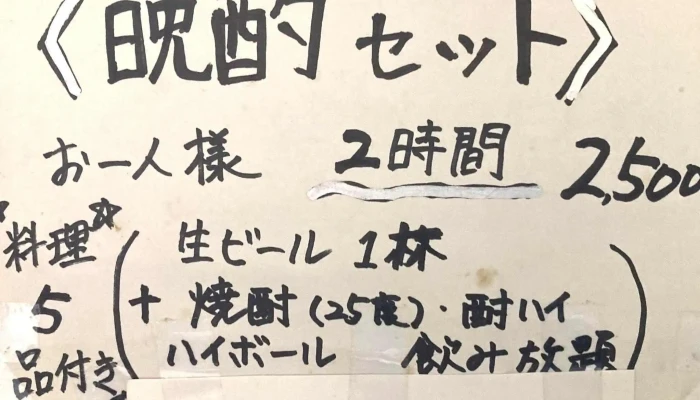 《晩酌セット》
お一人様 2時間 2,500
☆料理☆
5
品付き
(生ビール 1杯
+ 焼酎(25度)・酎ハイ
ハイボール 飲み放題)